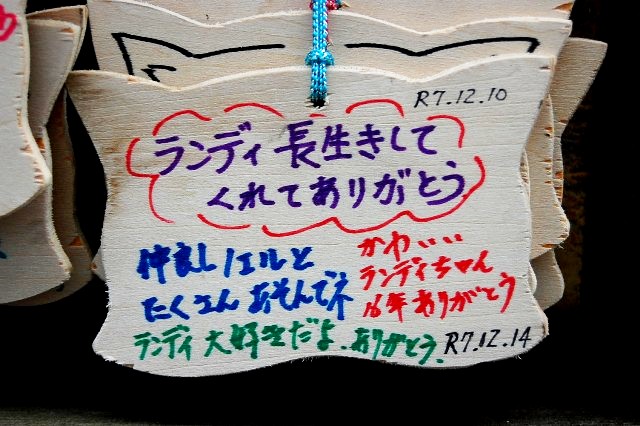 R7.12.10
ランディ 長生きして
くれてありがとう
仲良しノエルと
たくさん あそんでネ
かわいい
ランディちゃん
16年ありがとう
ランディ 大好きだよ.ありがとう.
R7.12.14